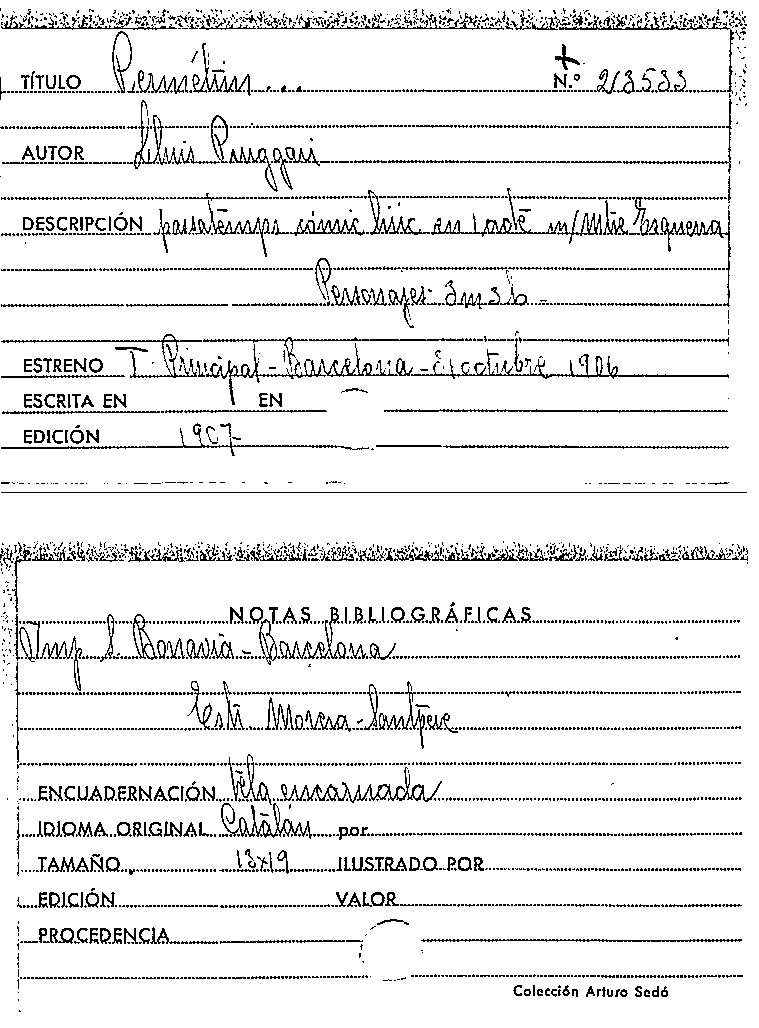 TÍTULO Permétin... N.º 213533
AUTOR Lluis Puiggari
DESCRIPCIÓN passatemps cómic liric en 1 acte m/Mtre Esquerra
Personajes: 3m 3h -
ESTRENO T. Principal - Barcelona - 31 octubre 1906
ESCRITA EN EN
EDICIÓN 1907
NOTAS BIBLIOGRÁFICAS
Imp S. Bonavia - Barcelona
Morera - Santpere
ENCUADERNACIÓN tela encarnada
IDIOMA ORIGINAL Catalán por
TAMAÑO 13x19 ILUSTRADO POR
EDICIÓN VALOR
PROCEDENCIA
Colección Arturo Sedó